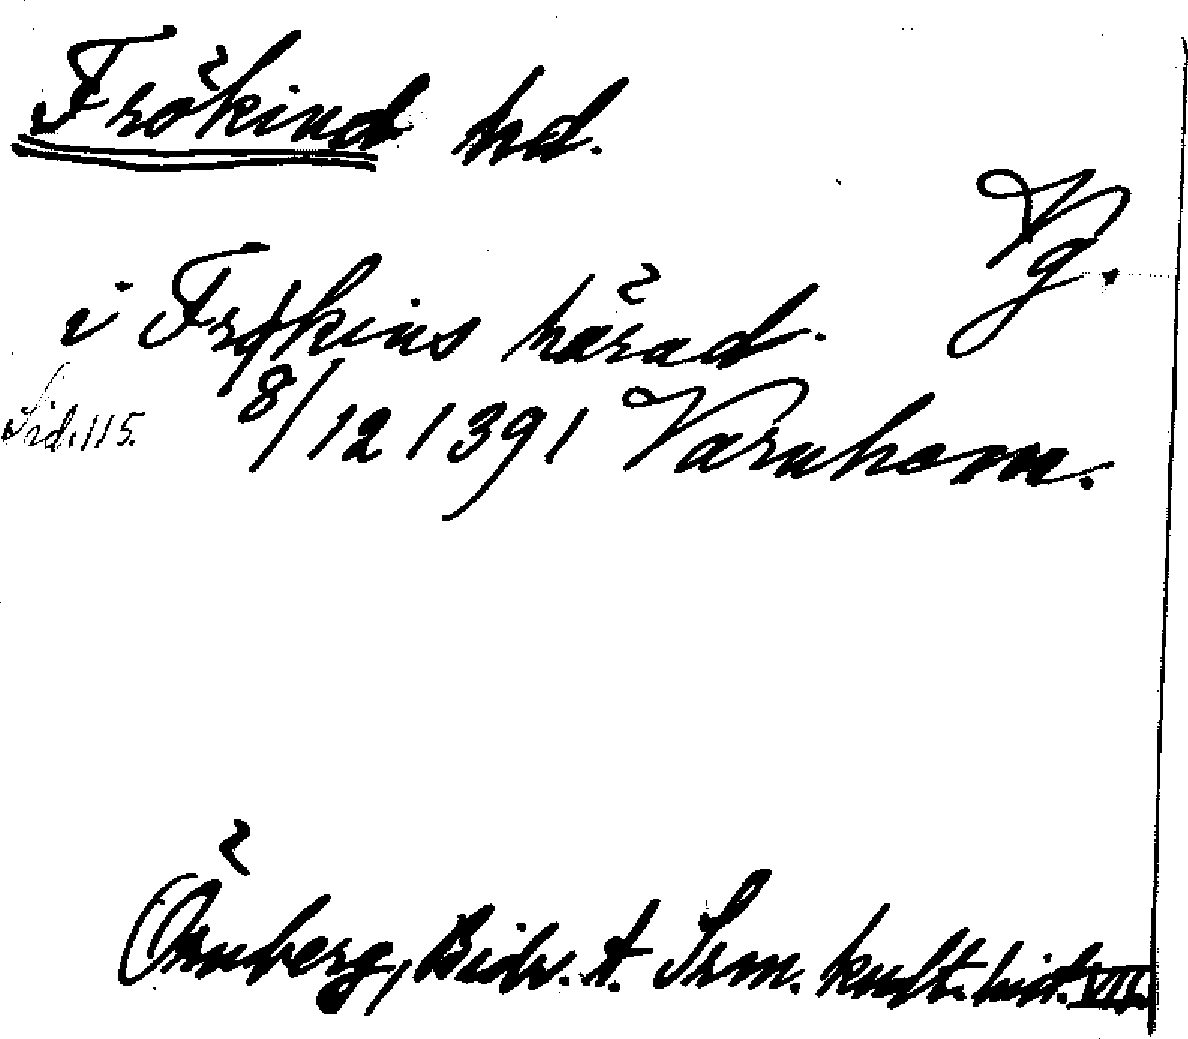 Frökind hd.
Vg.
i Frøkins härad.
Sid. 115. 8/12 1391 Varnhem.
Örnberg, Bidr. t. Srm. kult. hist. VII.